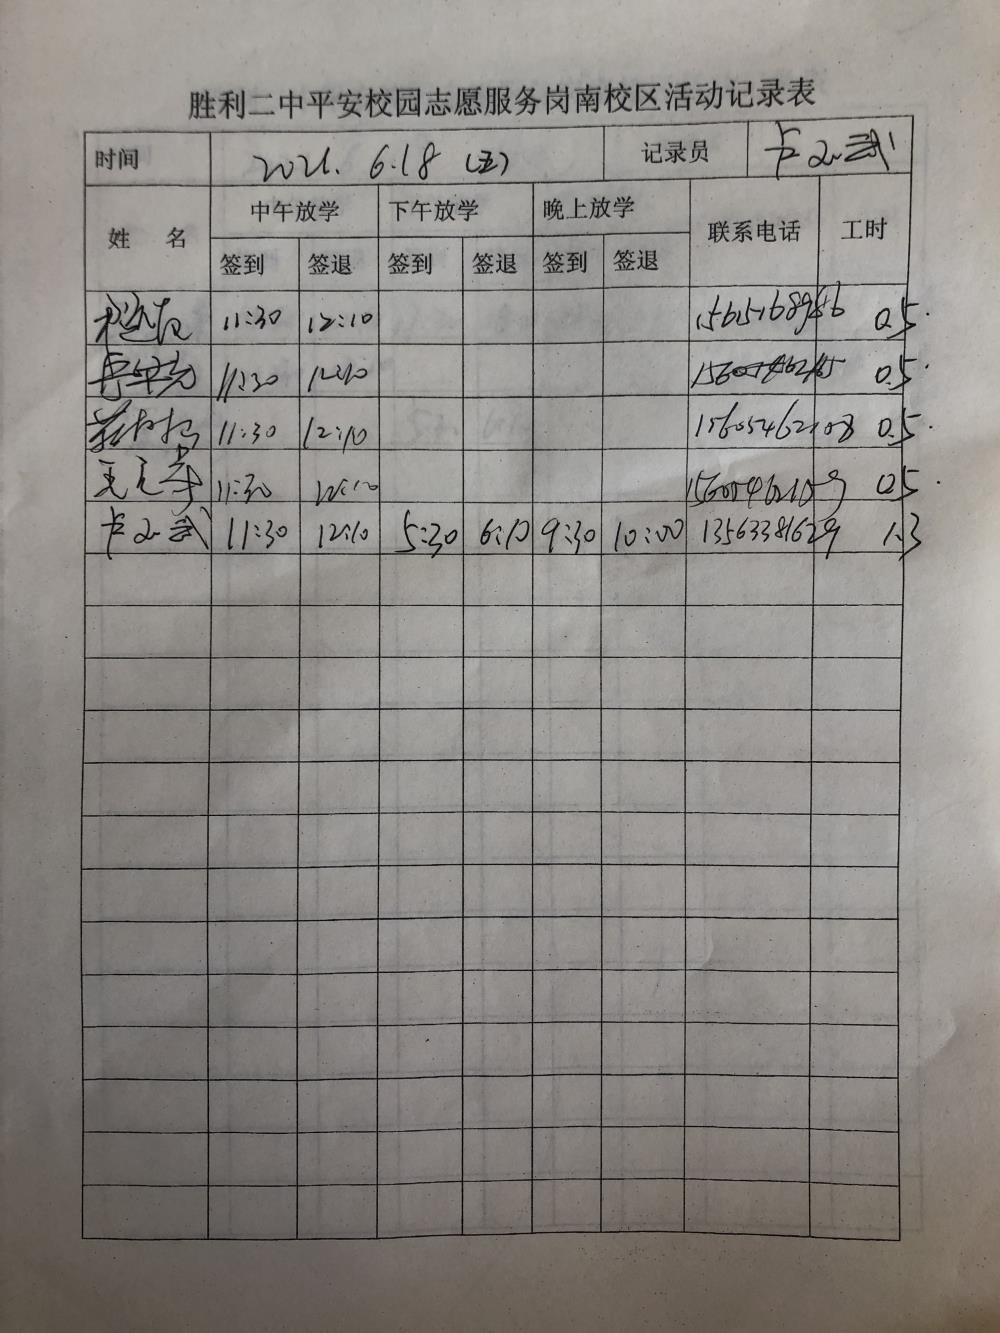 胜利二中平安校园志愿服务岗南校区活动记录表
时间 2021. 6.18 (五) 记录员
姓 名 中午放学 下午放学 晚上放学 联系电话 工时
签到 签退 签到 签退 签到 签退
11:30 12:10 0.5
11:30 12:10 0.5
11:30 12:10 15605462108 0.5
11:30 12:10 0.5
11:30 12:10 5:30 6:10 9:30 10:00 13563381629 1.3